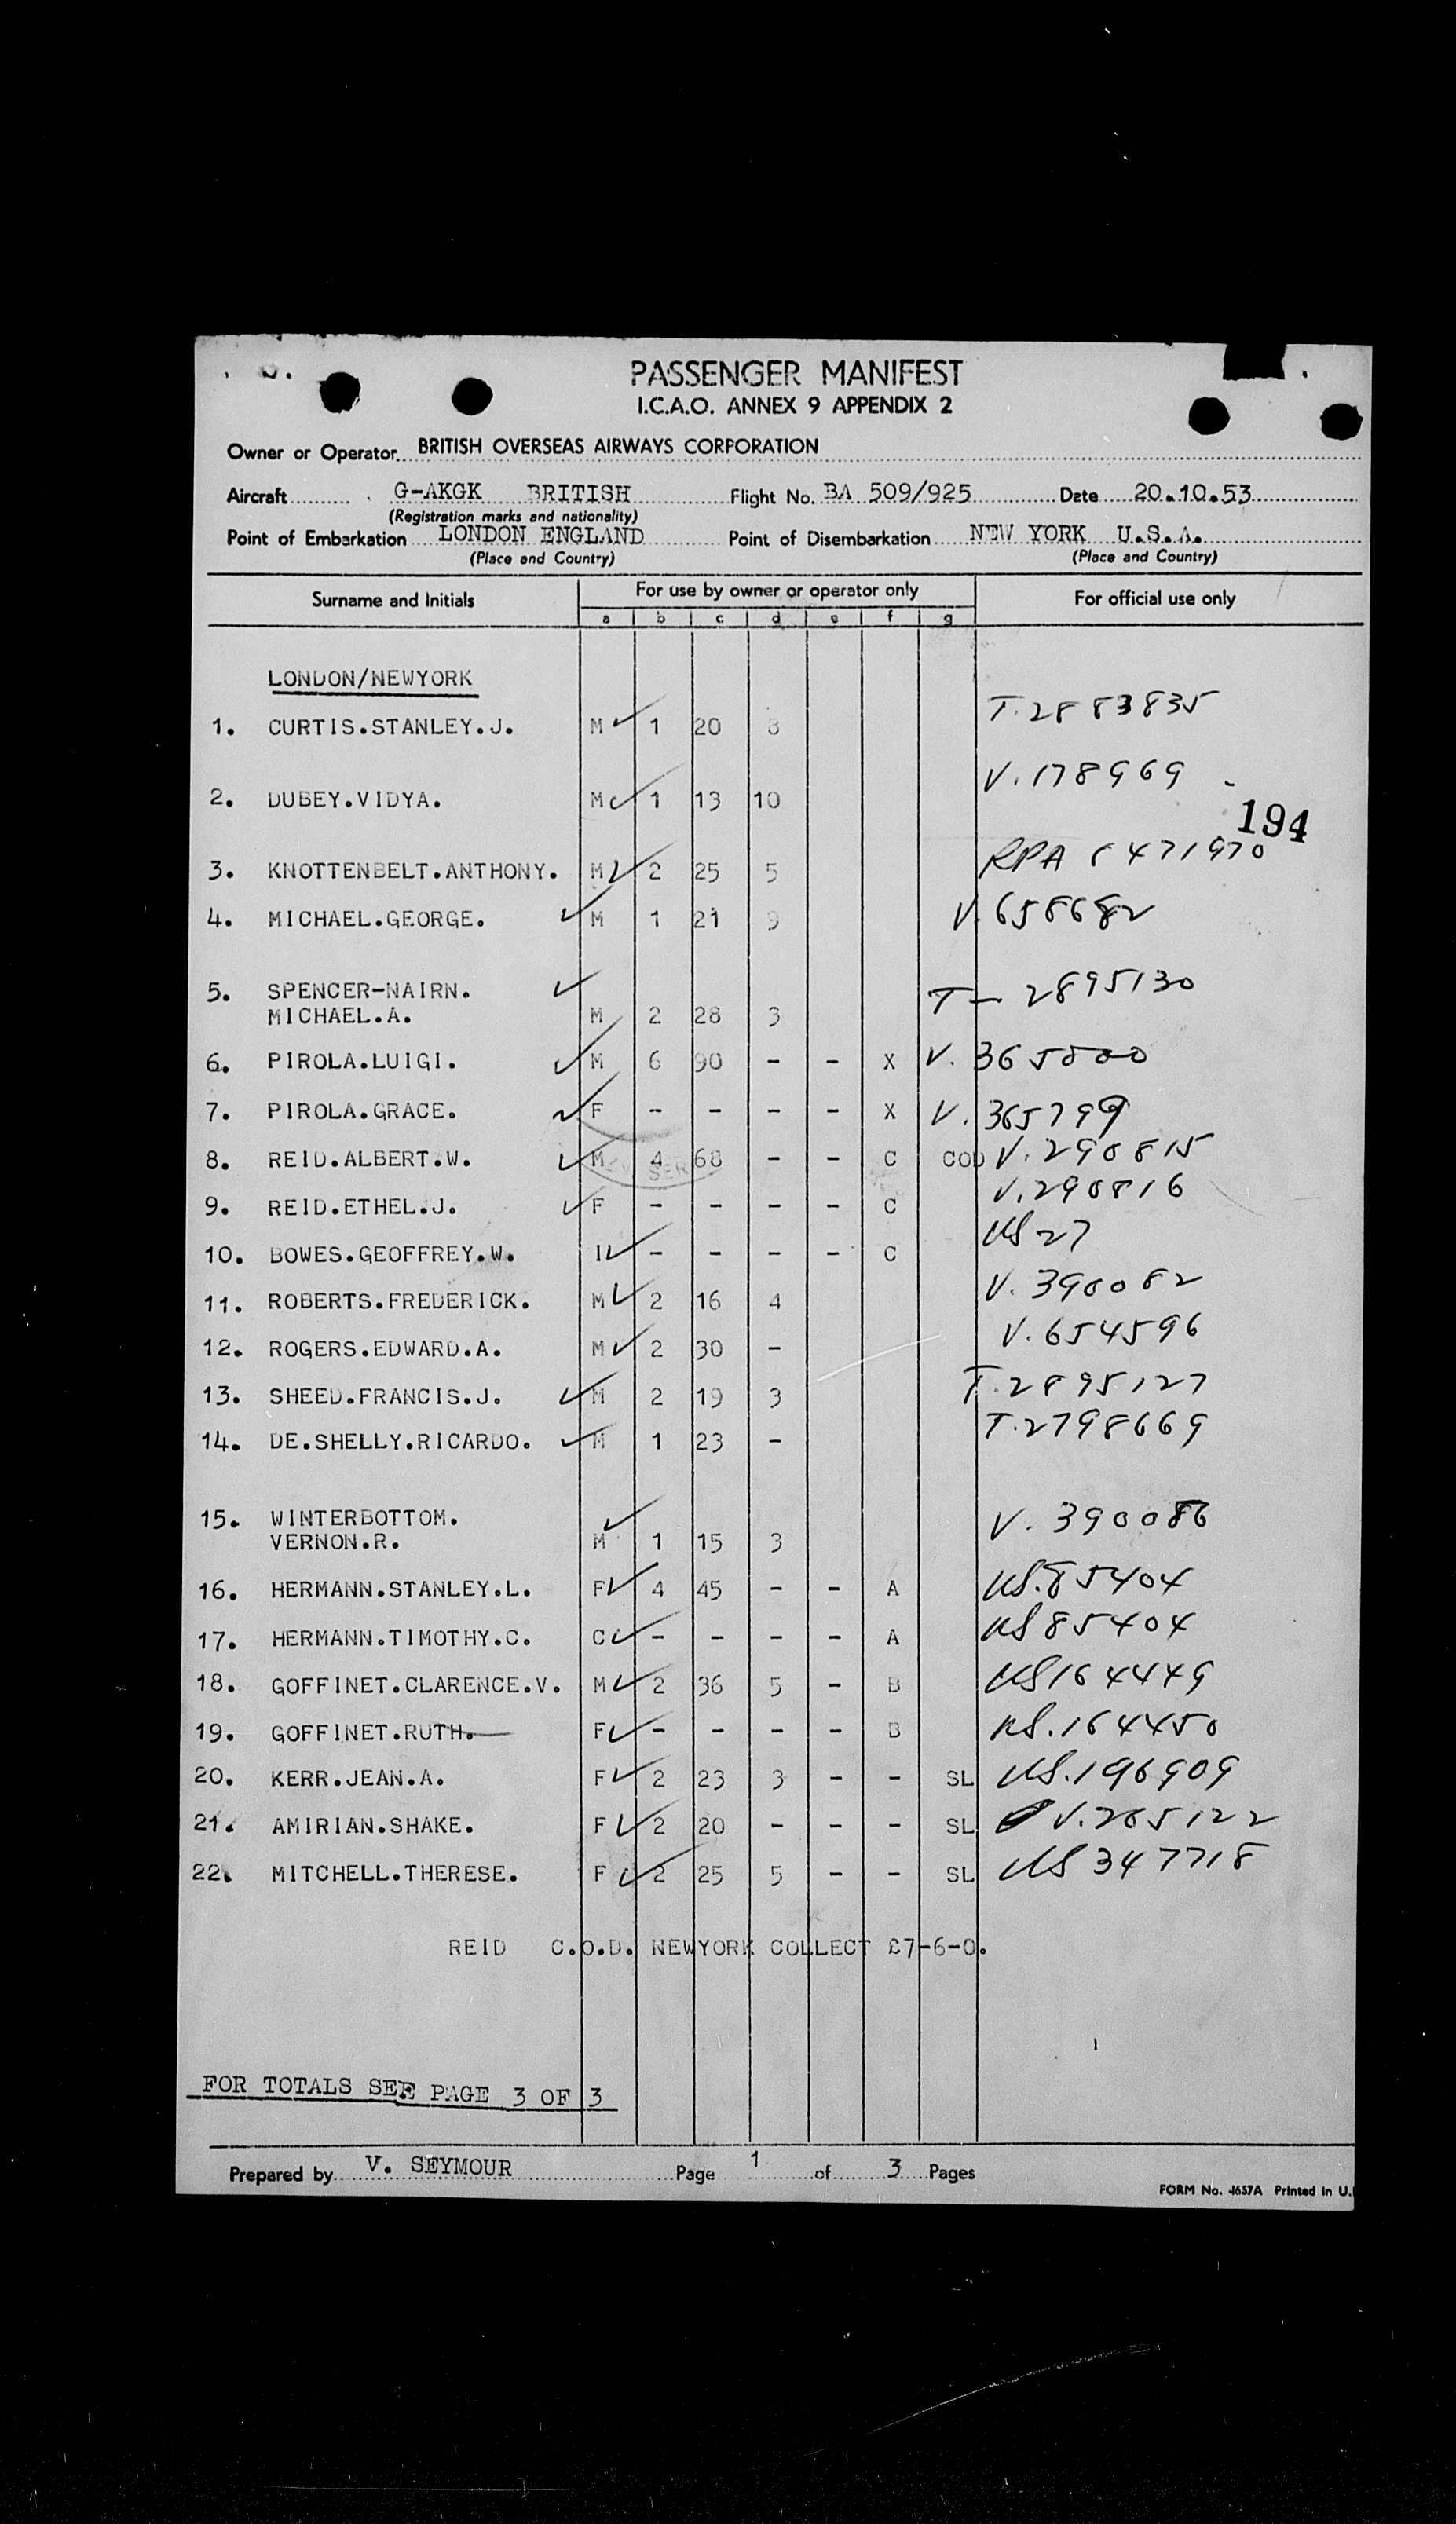 PASSENGER MANIFEST
I.C.A.O. ANNEX 9 APPENDIX 2
Owner or Operator BRITISH OVERSEAS AIRWAYS CORPORATION
Aircraft G-AKGK BRITISH Flight No. BA 509/925 Date 20.10.53
(Registration marks and nationality)
Point of Embarkation LONDON ENGLAND Point of Disembarkation NEW YORK U.S.A.
(Place and Country) (Place and Country)
Surname and Initials For use by owner or operator only For official use only
a b c d e f g
LONDON/NEWYORK
1. CURTIS.STANLEY.J. M 1 20 8 T.2883835
2. DUBEY.VIDYA. M 1 13 10 V.178969
194
3. KNOTTENBELT.ANTHONY. M 2 25 5 RPA 471970
4. MICHAEL.GEORGE. M 1 21 9 V.658682
5. SPENCER-NAIRN. T- 2895130
MICHAEL.A. M 2 28 3
6. PIROLA.LUIGI. M 6 90 - - X V. 365800
7. PIROLA.GRACE. F - - - - X V. 365799
8. REID.ALBERT.W. M 4 68 - - C COD V.290815
9. REID.ETHEL.J. F - - - - C V.290816
10. BOWES.GEOFFREY.W. - - - - C US 27
11. ROBERTS.FREDERICK. M 2 16 4 V. 390082
12. ROGERS.EDWARD.A. M 2 30 - V.654596
13. SHEED.FRANCIS.J. M 2 19 3 T.2895127
14. DE.SHELLY.RICARDO. M 1 23 - T.2798669
15. WINTERBOTTOM. V. 390086
VERNON.R. M 1 15 3
16. HERMANN.STANLEY.L. F 4 45 - - A US.85404
17. HERMANN.TIMOTHY.C. C - - - - A US 85404
18. GOFFINET.CLARENCE.V. M 2 36 5 - B US 164449
19. GOFFINET.RUTH. F - - - - B US.164450
20. KERR.JEAN.A. F 2 23 3 - - SL US.196909
21. AMIRIAN.SHAKE. F 2 20 - - - SL V.265122
22. MITCHELL.THERESE. F 2 25 5 - - SL US 347718
REID C.O.D. NEWYORK COLLECT £7-6-0.
FOR TOTALS SEE PAGE 3 OF 3
Prepared by V. SEYMOUR Page 1 of 3 Pages
FORM No. 4657A Printed in U.